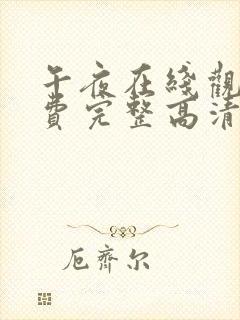 午夜在綫觀
費完整高清
厄齊尔